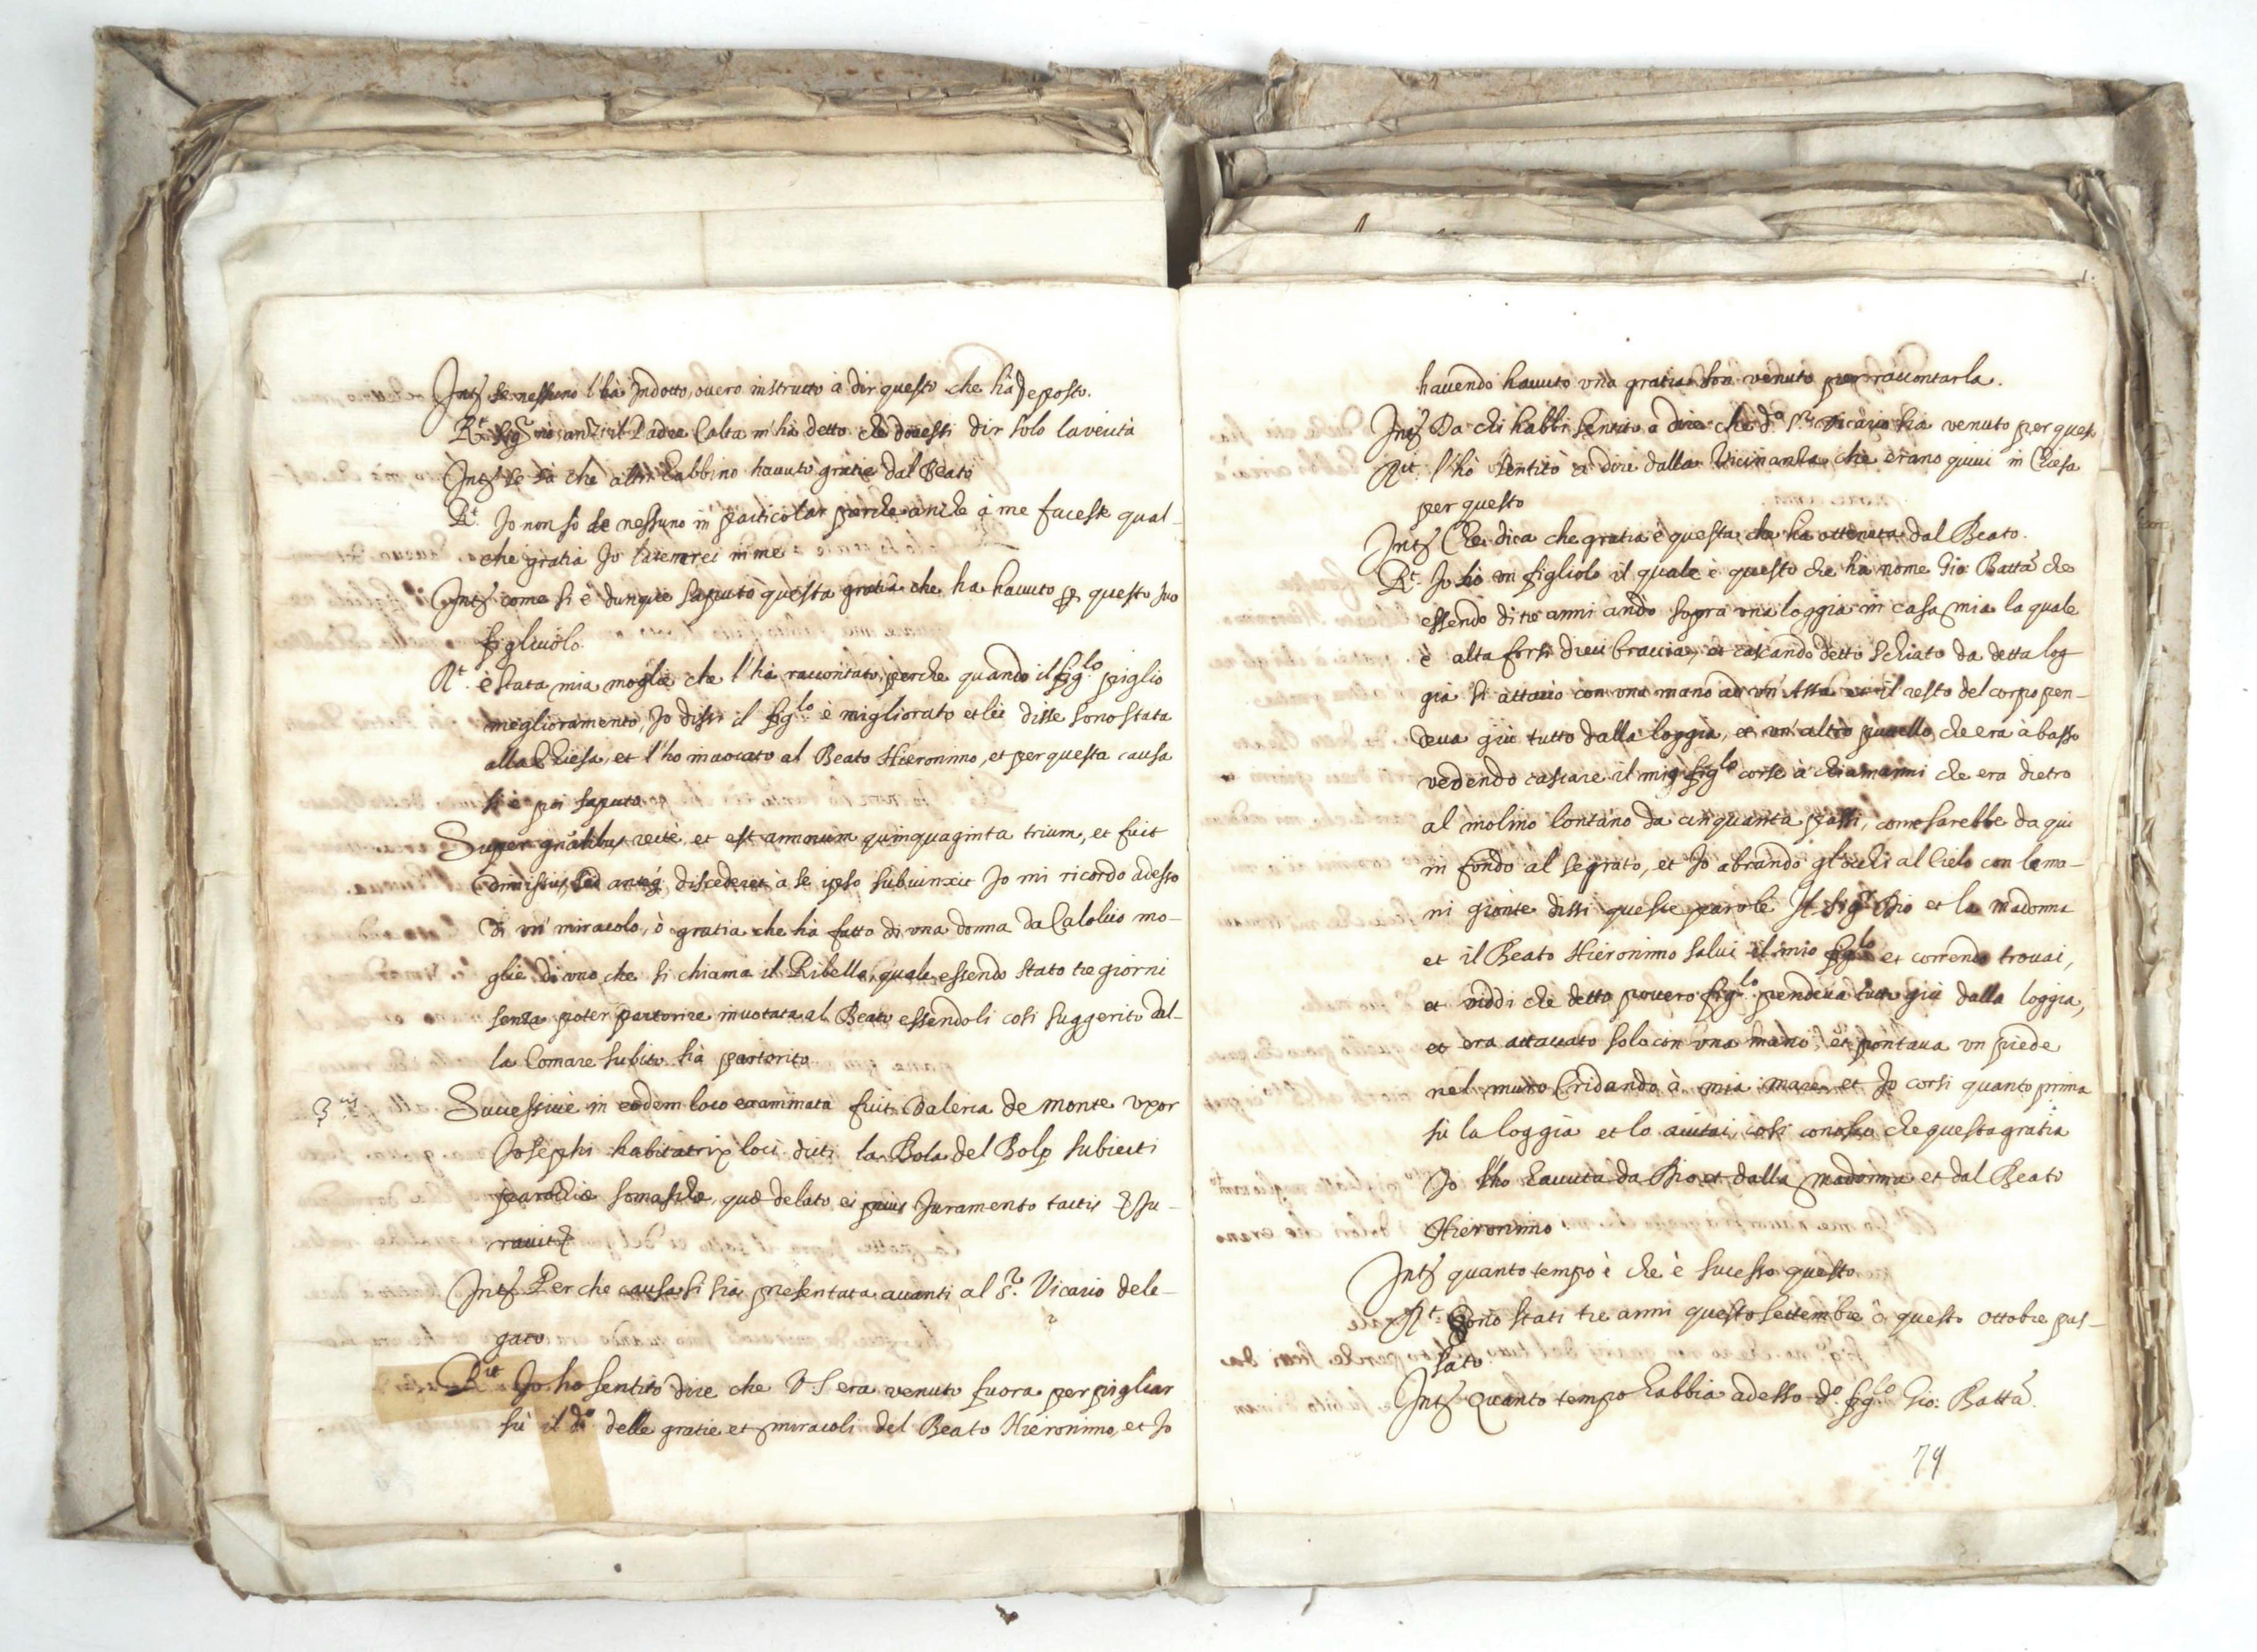 Int.s se nessuno l'hà indotto, ouero instrutto à dir questo che hà deposto.
R.t Sig.r nò anzi il Padre Calta m'hà detto che douessi dir solo la verità
Int.s se sà che altri habbino hauuto gratie dal Beato
R.t Jo non sò de nessuno in particolar perche anche à me facesse qual-
che gratia Jo la tenerei in me
Int.s come si è dunque saputo questa gratia che ha hauuto p questo suo
figliuolo.
R.t è stata mia moglie che l'hà raccontato, perche quando il fig.lo piglio
meglioramento, Jo dissi il fig.lo è migliorato et lei disse sono stata
alla Chiesa, et l'ho inuocato al Beato Hieronimo, et per questa causa
si è poi saputo
Super gnalibus recte, et est annorum quinquaginta trium, et fuit
dimissus, sed anteq. discederet à se ipso subiunxit Jo mi ricordo adesso
di un miracolo, ò gratia che hà fatto di una donna da Calolcio mo-
glie di uno che si chiama il Ribella, quale essendo stato tre giorni
senza poter partorire inuotata al Beato essendoli cosi suggerito dal-
la Comare subito hà partorito
3.us Successiue in eodem loco examinata fuit Valeria de Monte uxor
Josephi habitatrix loci dicti la Bola del Bolp subiecti
parochiæ Somaschæ, quæ delato ei prius Juramento tactis &c Ju-
rauit &c
Int.s Per che causa si sia presentata auanti al S.r Vicario dele-
gato
R.it Jo ho sentito dire che V S era venuto fuora per pigliar
sù il d.o delle gratie et miracoli del Beato Hieronimo, et Jo
hauendo hauuto una gratia son venuto per raccontarla.
Int.s Da chi habbi sentito a dire che d.o S.r Vicario sia venuto per quest
R.it l'hò sentito à dire dalla Vicinanza che erano quiui in Chiesa
per questo
Int.s Che dica che gratia è questa che ha ottenuta dal Beato.
R.t Jo hò un figliolo il quale è questo che hà nome Gio: Batta che
essendo di tre anni andò sopra una loggia in casa mia la quale
è alta forsi dieci braccia, et cascando detto schiato da detta log
gia si attaciò con una mano ad un' Assa et il resto del corpo pen-
deua giù tutto dalla loggia, et un' altro piuello che era à basso
vedendo cascare il mio fig.lo corse à chiamarmi che era dietro
al molino lontano da cinquanta passi, come sarebbe da qui
in fondo al segrato, et Jo alzando gl'occhi al Cielo con le ma-
ni gionte dissi queste parole Il Sig.r Dio et la Madonna
et il Beato Hieronimo salui il mio fig.lo et correndo trouai,
et viddi che detto pouero fig.lo pendeua tutto giù dalla loggia,
et era attaccato solo con una mano, et pontaua un piede
nel muro Cridando à mia mare et Jo corsi quanto prima
sù la loggia et lo aiutai, cosi conosco che questa gratia
Jo l'ho hauuta da Dio et dalla Madonna et dal Beato
Hieronimo
Int.s quanto tempo è che è sucesso questo
R.t Sono stati tre anni questo settembre ò questo ottobre pas-
sato
Int.s Quanto tempo habbia adesso d.o fig.lo Gio: Batta
79